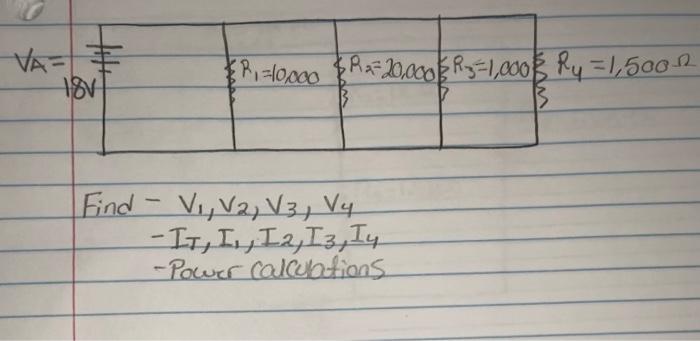 VA=
18V
R1=10,000 R2=20,000 R3=1,000 R4=1,500Ω
Find - V1, V2, V3, V4
-IT, I1, I2, I3, I4
-Power calculations